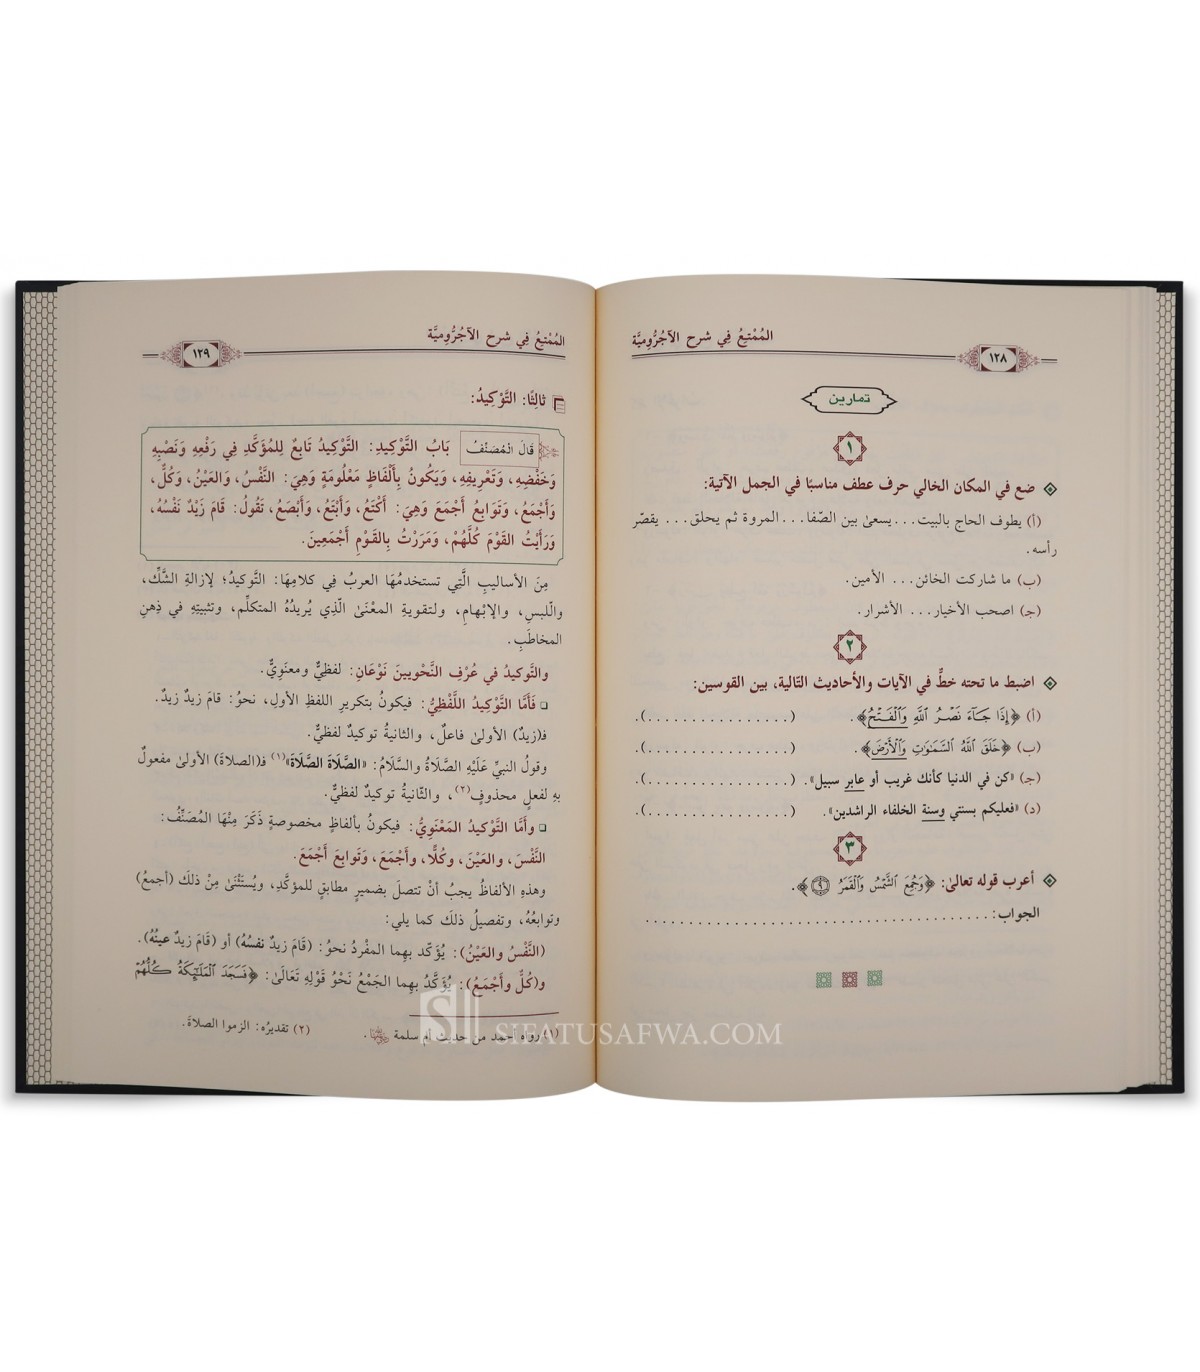 المُمْتِعُ فِي شرح الآجُرُّومِيَّة
١٢٨
تمارين
١
ضع في المكان الخالي حرف عطف مناسبًا في الجمل الآتية:
(أ) يطوف الحاج بالبيت... يسعىٰ بين الصّفا... المروة ثم يحلق... يقصّر
رأسه.
(ب) ما شاركت الخائن... الأمين.
(جـ) اصحب الأخيار... الأشرار.
٢
اضبط ما تحته خطٌّ في الآيات والأحاديث التّالية، بين القوسين:
(أ) ﴿إِذَا جَآءَ نَصْرُ ٱللَّهِ وَٱلْفَتْحُ﴾. (................).
(ب) ﴿خَلَقَ ٱللَّهُ ٱلسَّمَٰوَٰتِ وَٱلْأَرْضَ﴾. (................).
(جـ) «كن في الدنيا كأنك غريب أو عابر سبيل». (................).
(د) «فعليكم بسنتي وسنة الخلفاء الراشدين». (................).
٣
أعرب قوله تعالىٰ: ﴿وَجُمِعَ ٱلشَّمْسُ وَٱلْقَمَرُ ٩﴾.
الجواب: ......................................
المُمْتِعُ فِي شرح الآجُرُّومِيَّة
١٢٩
ثالِثًا: التَّوْكِيدُ:
قَالَ المُصَنِّفُ بَابُ التَّوْكِيدِ: التَّوْكِيدُ تَابِعٌ لِلمُؤَكَّدِ فِي رَفْعِهِ وَنَصْبِهِ
وَخَفْضِهِ، وَتَعْرِيفِهِ، وَيَكُونُ بِأَلْفَاظٍ مَعْلُومَةٍ وَهِيَ: النَّفْسُ، وَالعَيْنُ، وَكُلُّ،
وَأَجْمَعُ، وَتَوَابِعُ أَجْمَعَ وَهِيَ: أَكْتَعُ، وَأَبْتَعُ، وَأَبْصَعُ، تَقُولُ: قَامَ زَيْدٌ نَفْسُهُ،
وَرَأَيْتُ القَوْمَ كُلَّهُمْ، وَمَرَرْتُ بِالقَوْمِ أَجْمَعِينَ.
مِنَ الأساليبِ الَّتِي تستخدمُهَا العربُ فِي كلامِهَا: التَّوكيدُ؛ لإزالةِ الشَّكِّ،
واللّبسِ، والإبْهامِ، ولتقويةِ المعْنَىٰ الَّذِي يُريدُهُ المتكلِّم، وتثبيتِهِ في ذِهنِ
المخاطَبِ.
والتَّوكيدُ في عُرْفِ النَّحْويينَ نَوْعَانِ: لفظيٌّ ومعنَوِيٌّ.
فَأَمَّا التَّوْكِيدُ اللَّفْظِيُّ: فيكونُ بتكريرِ اللفظِ الأولِ، نحوُ: قامَ زيدٌ زيدٌ.
فـ(زيدٌ) الأولىٰ فاعلٌ، والثانيةُ توكيدٌ لفظيٌّ.
وقولُ النبيِّ عَلَيْهِ الصَّلَاةُ والسَّلَامُ: «الصَّلَاةَ الصَّلَاةَ»(١) فـ(الصلاةَ) الأولىٰ مفعولٌ
بهِ لفعلٍ محذوفٍ(٢)، والثّانيةُ توكيدٌ لفظيٌّ.
وأَمَّا التَّوكيدُ المَعْنَوِيُّ: فيكونُ بألفاظٍ مخصوصةٍ ذَكَرَ مِنْهَا المُصَنِّفُ:
النَّفْسَ، والعَيْنَ، وكُلًّا، وأجْمَعَ، وَتَوابِعَ أَجْمَعَ.
وهذهِ الألفاظُ يجبُ أنْ تتصلَ بضميرٍ مطابقٍ للمؤكَّدِ، ويُسْتَثْنَىٰ مِنْ ذلكَ (أجمعُ)
وتوابعُهُ، وتفصيلُ ذلكَ كما يلي:
(النَّفْسُ والعَيْنُ): يُؤَكّد بهِما المفْردُ نحوُ: (قَامَ زيدٌ نفسُهُ) أو (قَامَ زيدٌ عينُهُ).
و(كُلّ وأَجْمَعُ): يُؤَكَّدُ بهِما الجَمْعُ نَحْوُ قَوْلِهِ تَعَالَىٰ: ﴿فَسَجَدَ ٱلْمَلَٰٓئِكَةُ كُلُّهُمْ
(١) رواه أحمد من حديث أم سلمة. (٢) تقديرُه: الزموا الصلاةَ.
SIFATUSAFWA.COM